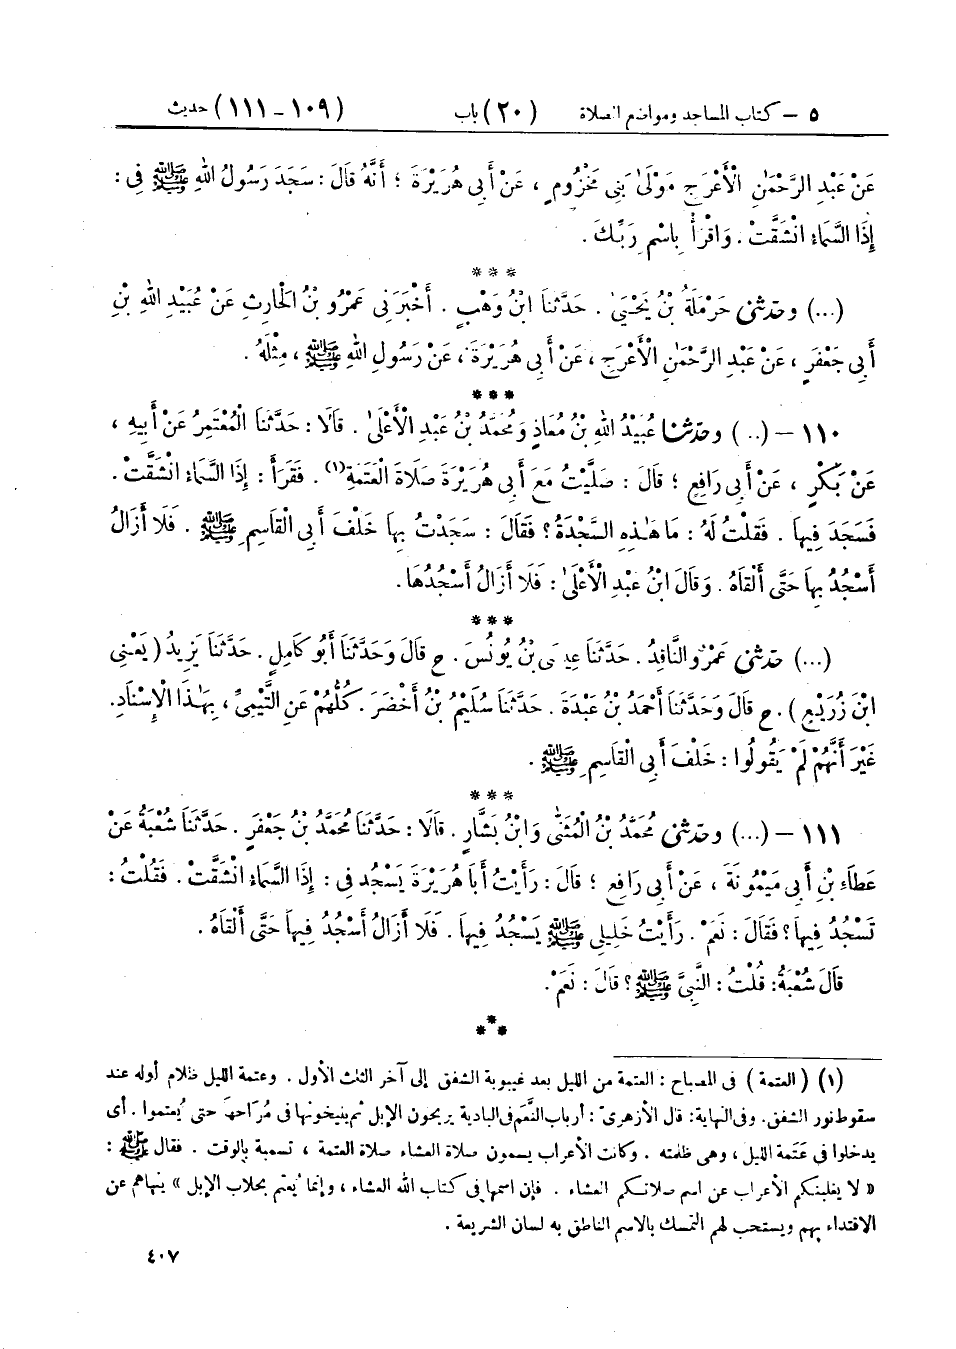 ٥ – كتاب المساجد ومواضع الصلاة (٢٠) باب (١٠٩ – ١١١) حديث
عَنْ عَبْدِ الرَّحْمَٰنِ الْأَعْرَجِ مَوْلَىٰ بَنِى مَخْزُومٍ ، عَنْ أَبِى هُرَيْرَةَ ؛ أَنَّهُ قَالَ : سَجَدَ رَسُولُ اللهِ ﷺ فِى :
إِذَا السَّمَاءُ انْشَقَّتْ . وَاقْرَأْ بِاسْمِ رَبِّكَ .
* * *
(...) وحَدَّثَنِى حَرْمَلَةُ بْنُ يَحْيَىٰ . حَدَّثَنَا ابْنُ وَهْبٍ . أَخْبَرَنِى عَمْرُو بْنُ الْحَارِثِ عَنْ عُبَيْدِ اللهِ بْنِ
أَبِى جَعْفَرٍ ، عَنْ عَبْدِ الرَّحْمَٰنِ الْأَعْرَجِ ، عَنْ أَبِى هُرَيْرَةَ ، عَنْ رَسُولِ اللهِ ﷺ ، مِثْلَهُ .
* * *
١١٠ – (..) وحَدَّثَنَا عُبَيْدُ اللهِ بْنُ مُعَاذٍ وَمُحَمَّدُ بْنُ عَبْدِ الْأَعْلَىٰ . قَالَا : حَدَّثَنَا الْمُعْتَمِرُ عَنْ أَبِيهِ ،
عَنْ بَكْرٍ ، عَنْ أَبِى رَافِعٍ ؛ قَالَ : صَلَّيْتُ مَعَ أَبِى هُرَيْرَةَ صَلَاةَ الْعَتَمَةِ(١) . فَقَرَأَ : إِذَا السَّمَاءُ انْشَقَّتْ .
فَسَجَدَ فِيهَا . فَقُلْتُ لَهُ : مَا هَٰذِهِ السَّجْدَةُ ؟ فَقَالَ : سَجَدْتُ بِهَا خَلْفَ أَبِى الْقَاسِمِ ﷺ . فَلَا أَزَالُ
أَسْجُدُ بِهَا حَتَّى أَلْقَاهُ . وَقَالَ ابْنُ عَبْدِ الْأَعْلَىٰ : فَلَا أَزَالُ أَسْجُدُهَا .
* * *
(...) حَدَّثَنِى عَمْرٌو النَّاقِدُ . حَدَّثَنَا عِيسَى بْنُ يُونُسَ . ح قَالَ وَحَدَّثَنَا أَبُو كَامِلٍ . حَدَّثَنَا يَزِيدُ ( يَعْنِى
ابْنَ زُرَيْعٍ ) . ح قَالَ وَحَدَّثَنَا أَحْمَدُ بْنُ عَبْدَةَ . حَدَّثَنَا سُلَيْمُ بْنُ أَخْضَرَ . كُلُّهُمْ عَنِ التَّيْمِىِّ ، بِهَٰذَا الْإِسْنَادِ .
غَيْرَ أَنَّهُمْ لَمْ يَقُولُوا : خَلْفَ أَبِى الْقَاسِمِ ﷺ .
* * *
١١١ – (...) وحَدَّثَنِى مُحَمَّدُ بْنُ الْمُثَنَّىٰ وَابْنُ بَشَّارٍ . قَالَا : حَدَّثَنَا مُحَمَّدُ بْنُ جَعْفَرٍ . حَدَّثَنَا شُعْبَةُ عَنْ
عَطَاءِ بْنِ أَبِى مَيْمُونَةَ ، عَنْ أَبِى رَافِعٍ ؛ قَالَ : رَأَيْتُ أَبَا هُرَيْرَةَ يَسْجُدُ فِى : إِذَا السَّمَاءُ انْشَقَّتْ . فَقُلْتُ :
تَسْجُدُ فِيهَا ؟ فَقَالَ : نَعَمْ . رَأَيْتُ خَلِيلِى ﷺ يَسْجُدُ فِيهَا . فَلَا أَزَالُ أَسْجُدُ فِيهَا حَتَّى أَلْقَاهُ .
قَالَ شُعْبَةُ : قُلْتُ : النَّبِىَّ ﷺ ؟ قَالَ : نَعَمْ .
* * *
(١) (العتمة) فى المصباح : العتمة من الليل بعد غيبوبة الشفق إلى آخر الثلث الأول . وعتمة الليل ظلام أوله عند
سقوط نور الشفق . وفى النهاية : قال الأزهرىّ : أرباب النَّعَم فى البادية يريحون الإبل ثم ينيخونها فى مُرَاحها حتى يُعتموا . أى
يدخلوا فى عَتَمة الليل ، وهى ظلمته . وكانت الأعراب يسمون صلاة العشاء صلاة العتمة ، تسمية بالوقت . فقال ﷺ :
« لا يغلبنكم الأعراب عن اسم صلاتكم العشاء . فإن اسمها فى كتاب الله العشاء ، وإنما يُعتم بحلاب الإبل » ينهاهم عن
الاقتداء بهم ويستحب لهم التمسك بالاسم الناطق به لسان الشريعة .
٤٠٧